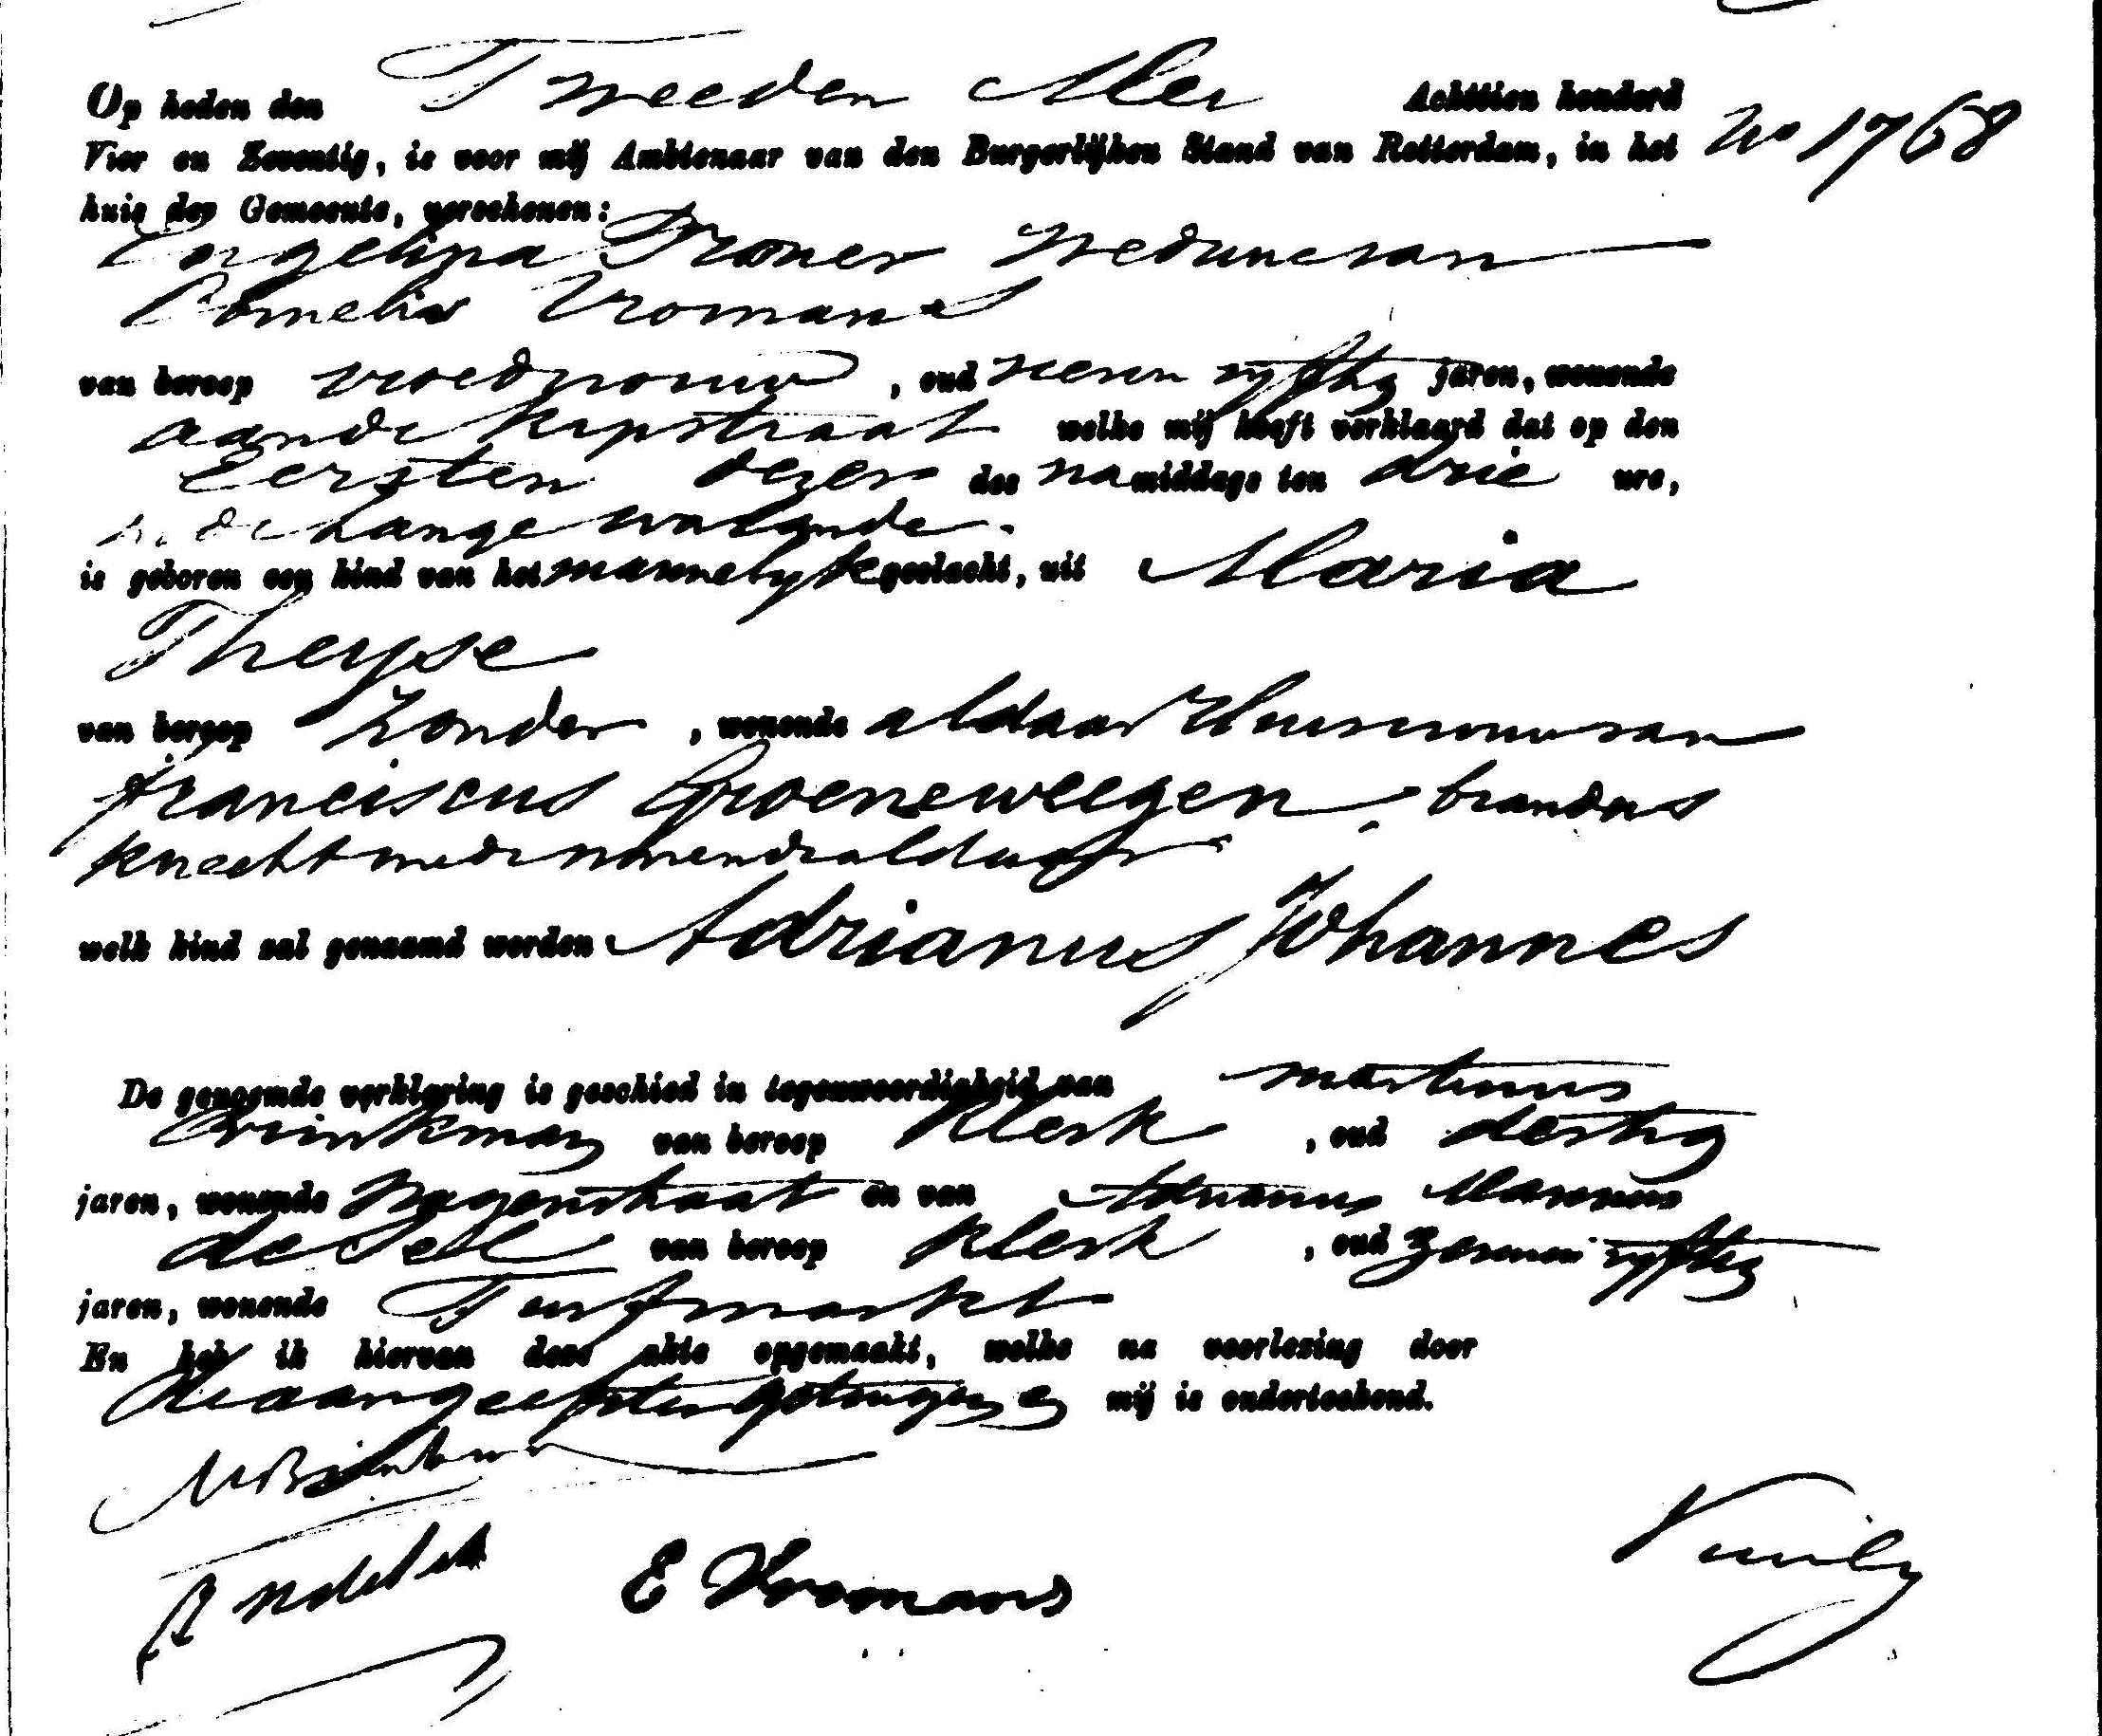 Op heden den Tweeden Mei Achttien honderd
No 1768
Vier en Zeventig, is voor mij Ambtenaar van den Burgerlijken Stand van Rotterdam, in het
huis der Gemeente, verschenen:
Engelina Troner weduwe van
Cornelis Vromans
van beroep vroedvrouw, oud zeven vyftig jaren, wonende
aan de Kipstraat welke mij heeft verklaard dat op den
Eersten dezer des namiddags ten drie ure,
in de Lange warande
is geboren een kind van het mannelyk geslacht, uit Maria
Theyse
van beroep zonder, wonende aldaar Huisvrouw van
Franciscus Groeneweegen, branders
knecht mede wonende aldaar
welk kind zal genaamd worden Adrianus Johannes
De genoemde verklaring is geschied in tegenwoordigheid van Martinus
Brinkman van beroep Klerk, oud dertig
jaren, wonende Wagenstraat en van Adrianus Marinus
de Sel van beroep Klerk, oud zevenen vyftig
jaren, wonende Turfmarkt
En heb ik hiervan deze akte opgemaakt, welke na voorlezing door
de aangeefster getuigen en mij is onderteekend.
M Brinkman
E Vromans